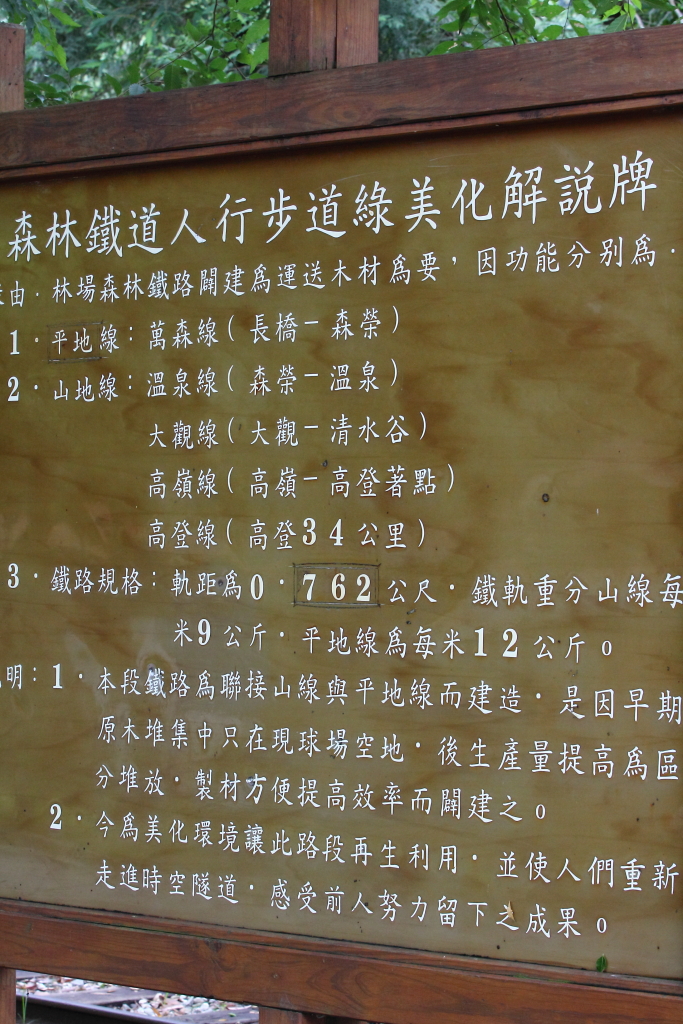 森林鐵道人行步道綠美化解說牌
由·林場森林鐵路闢建為運送木材為要，因功能分別為·
1·平地線：萬森線(長橋－森榮)
2·山地線：溫泉線(森榮－溫泉)
大觀線(大觀－清水谷)
高嶺線(高嶺－高登著點)
高登線(高登34公里)
3·鐵路規格：軌距為0·762公尺·鐵軌重分山線每
米9公斤·平地線為每米12公斤。
明：1·本段鐵路為聯接山線與平地線而建造·是因早期
原木堆集中只在現球場空地·後生產量提高為區
分堆放·製材方便提高效率而闢建之。
2·今為美化環境讓此路段再生利用·並使人們重新
走進時空隧道·感受前人努力留下之成果。